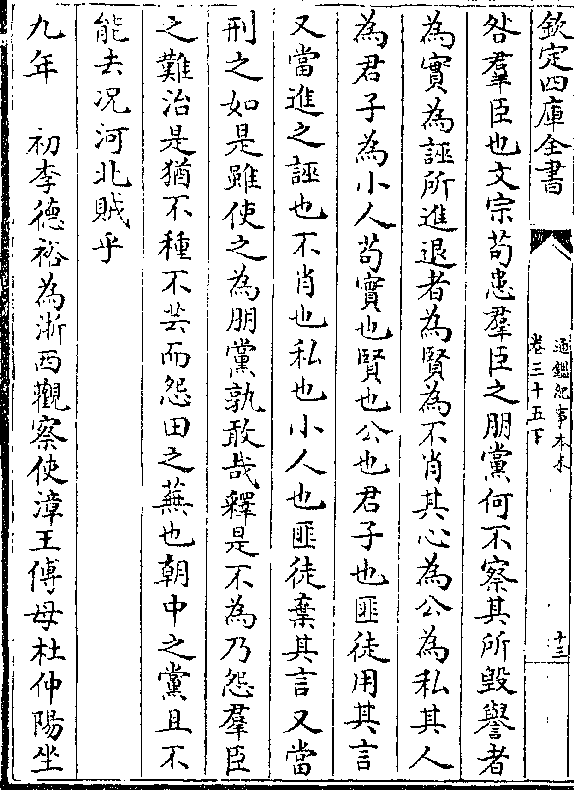 欽定四庫全書
通鑑紀事本末
卷三十五下
十三
咎羣臣也文宗茍患羣臣之朋黨何不察其所毀譽者
為實為誣所進退者為賢為不肖其心為公為私其人
為君子為小人茍實也賢也公也君子也匪徒用其言
又當進之誣也不肖也私也小人也匪徒棄其言又當
刑之如是雖使之為朋黨孰敢哉釋是不為乃怨羣臣
之難治是猶不種不芸而怨田之蕪也朝中之黨且不
能去况河北賊乎
九年　初李德裕為浙西觀察使漳王傅母杜仲陽坐